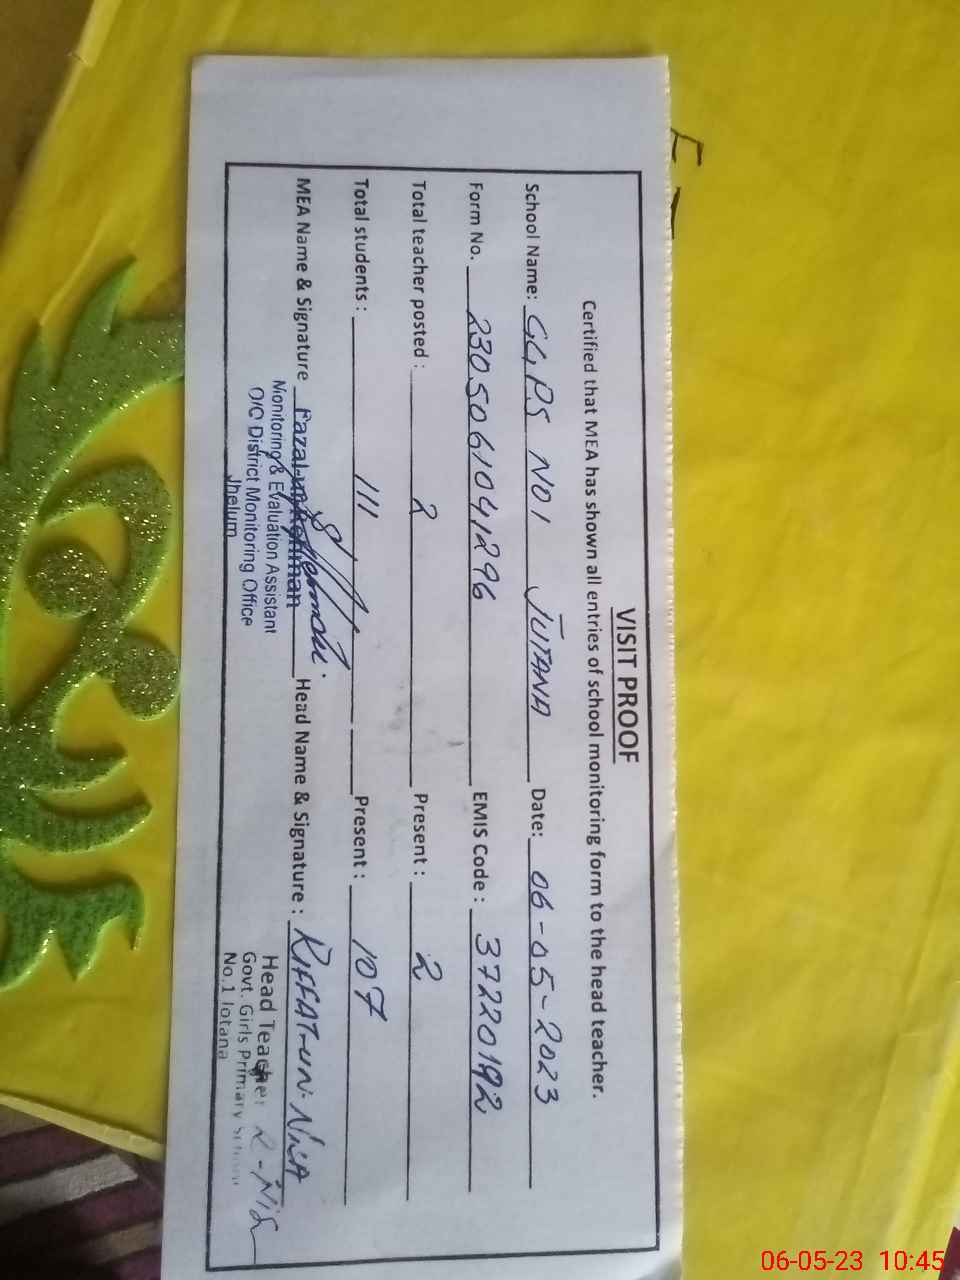 VISIT PROOF
Certified that MEA has shown all entries of school monitoring form to the head teacher.
School Name: GGPS NO1 JUTANA Date: 06-05-2023
Form No. 2305061041296 EMIS Code: 37220192
Total teacher posted: 2 Present: 2
Total students: 111 Present: 107
MEA Name & Signature Fazal-ur-Rehman Head Name & Signature: RIFFAT-UN-NISA
Monitoring & Evaluation Assistant
O/C District Monitoring Office
Jhelum
Head Teacher R-Nis
Govt. Girls Primary School
No.1 Jotana
06-05-23 10:45